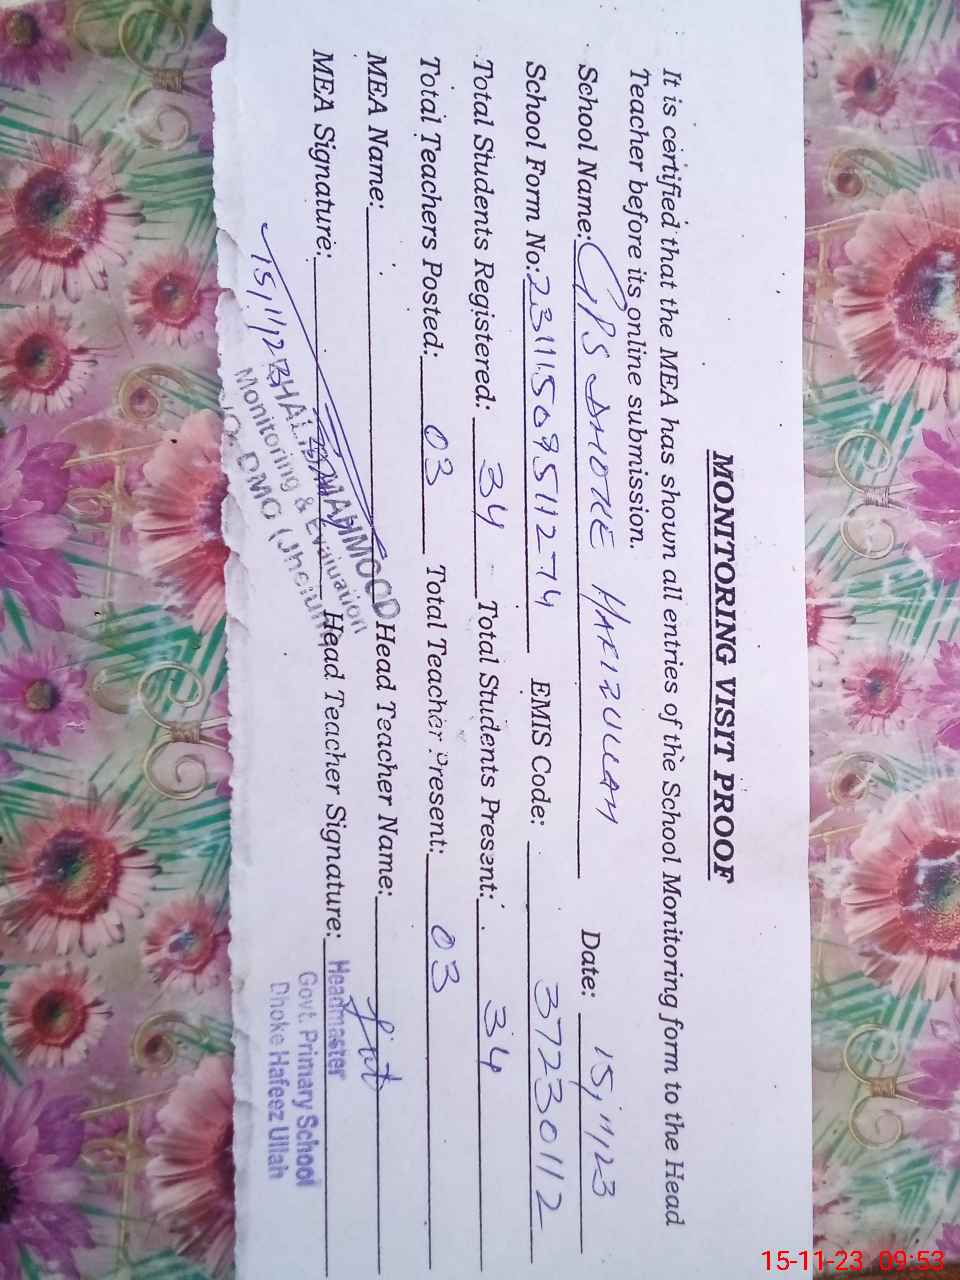 MONITORING VISIT PROOF
It is certified that the MEA has shown all entries of the School Monitoring form to the Head
Teacher before its online submission.
School Name: GPS DHOKE HAFIZULLAH Date: 15/11/23
School Form No: EMIS Code: 37230112
Total Students Registered: 34 Total Students Present: 34
Total Teachers Posted: 03 Total Teacher Present: 03
MEA Name: Head Teacher Name:
MEA Signature: Head Teacher Signature:
15/11/23
KHALID MAHMOOD
Monitoring & Evaluation
O/O DMO (Jhelum)
Headmaster
Govt. Primary School
Dhoke Hafeez Ullah
15-11-23 09:53